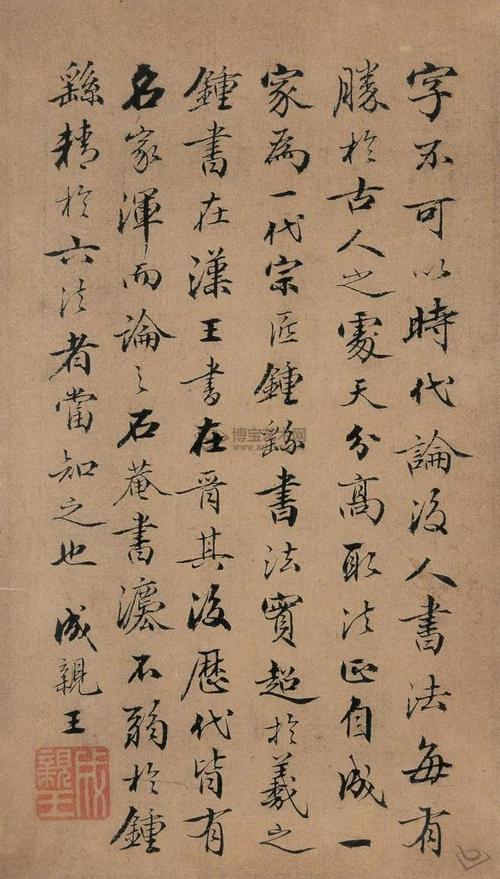 字不可以時代論後人書法每有
勝於古人之處天分高取法正自成一
家為一代宗匠鍾繇書法實超於羲之
鍾書在漢王書在晉其後歷代皆有
名家渾而論之石菴書濃不弱於鍾
繇精於六法者當知之也
成親王
成親王